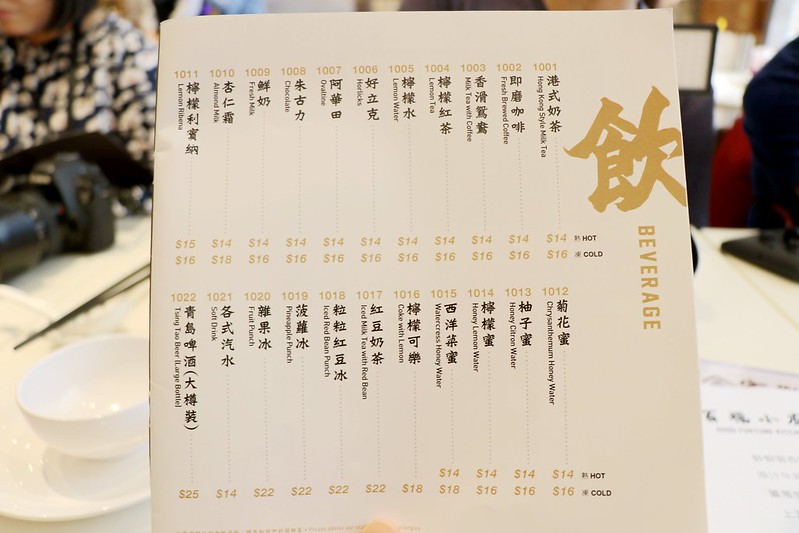 飲
BEVERAGE
1001 港式奶茶 Hong Kong Style Milk Tea $14 熱 HOT $16 凍 COLD
1002 即磨咖啡 Fresh Brewed Coffee $14 $16
1003 香滑鴛鴦 Milk Tea with Coffee $14 $16
1004 檸檬紅茶 Lemon Tea $14 $16
1005 檸檬水 Lemon Water $14 $16
1006 好立克 Horlicks $14 $16
1007 阿華田 Ovaltine $14 $16
1008 朱古力 Chocolate $14 $16
1009 鮮奶 Fresh Milk $14 $16
1010 杏仁霜 Almond Milk $14 $18
1011 檸檬利賓納 Lemon Ribena $15 $16
1012 菊花蜜 Chrysanthemum Honey Water $14 熱 HOT $16 凍 COLD
1013 柚子蜜 Honey Citron Water $14 $16
1014 檸檬蜜 Honey Lemon Water $14 $16
1015 西洋菜蜜 Watercress Honey Water $14 $18
1016 檸檬可樂 Coke with Lemon $18
1017 紅豆奶茶 Iced Milk Tea with Red Bean $22
1018 粒粒紅豆冰 Iced Red Bean Punch $22
1019 菠蘿冰 Pineapple Punch $22
1020 雜果冰 Fruit Punch $22
1021 各式汽水 Soft Drink $14
1022 青島啤酒(大樽裝) Tsing Tao Beer (Large Bottle) $25